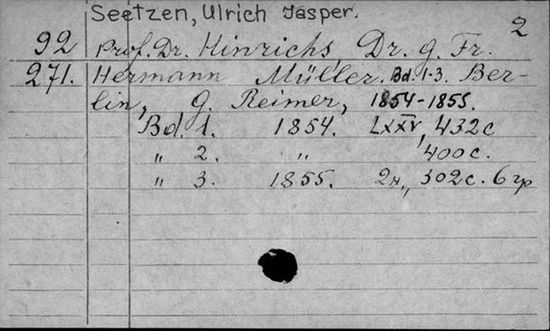 Seetzen, Ulrich Jasper.
2
92 Prof. Dr. Hinrichs Dr. G. Fr.
271. Hermann Müller. Bd. 1-3. Ber-
lin, G. Reimer, 1854-1855.
Bd. 1. 1854. LXXV, 432 с
„ 2. „ 400 с.
„ 3. 1855. 2 н., 302 с. 6 гр